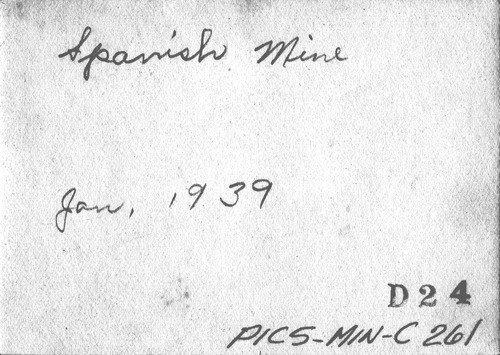 Spanish Mine
Jan, 1939
D24
PICS-MIN-C 261